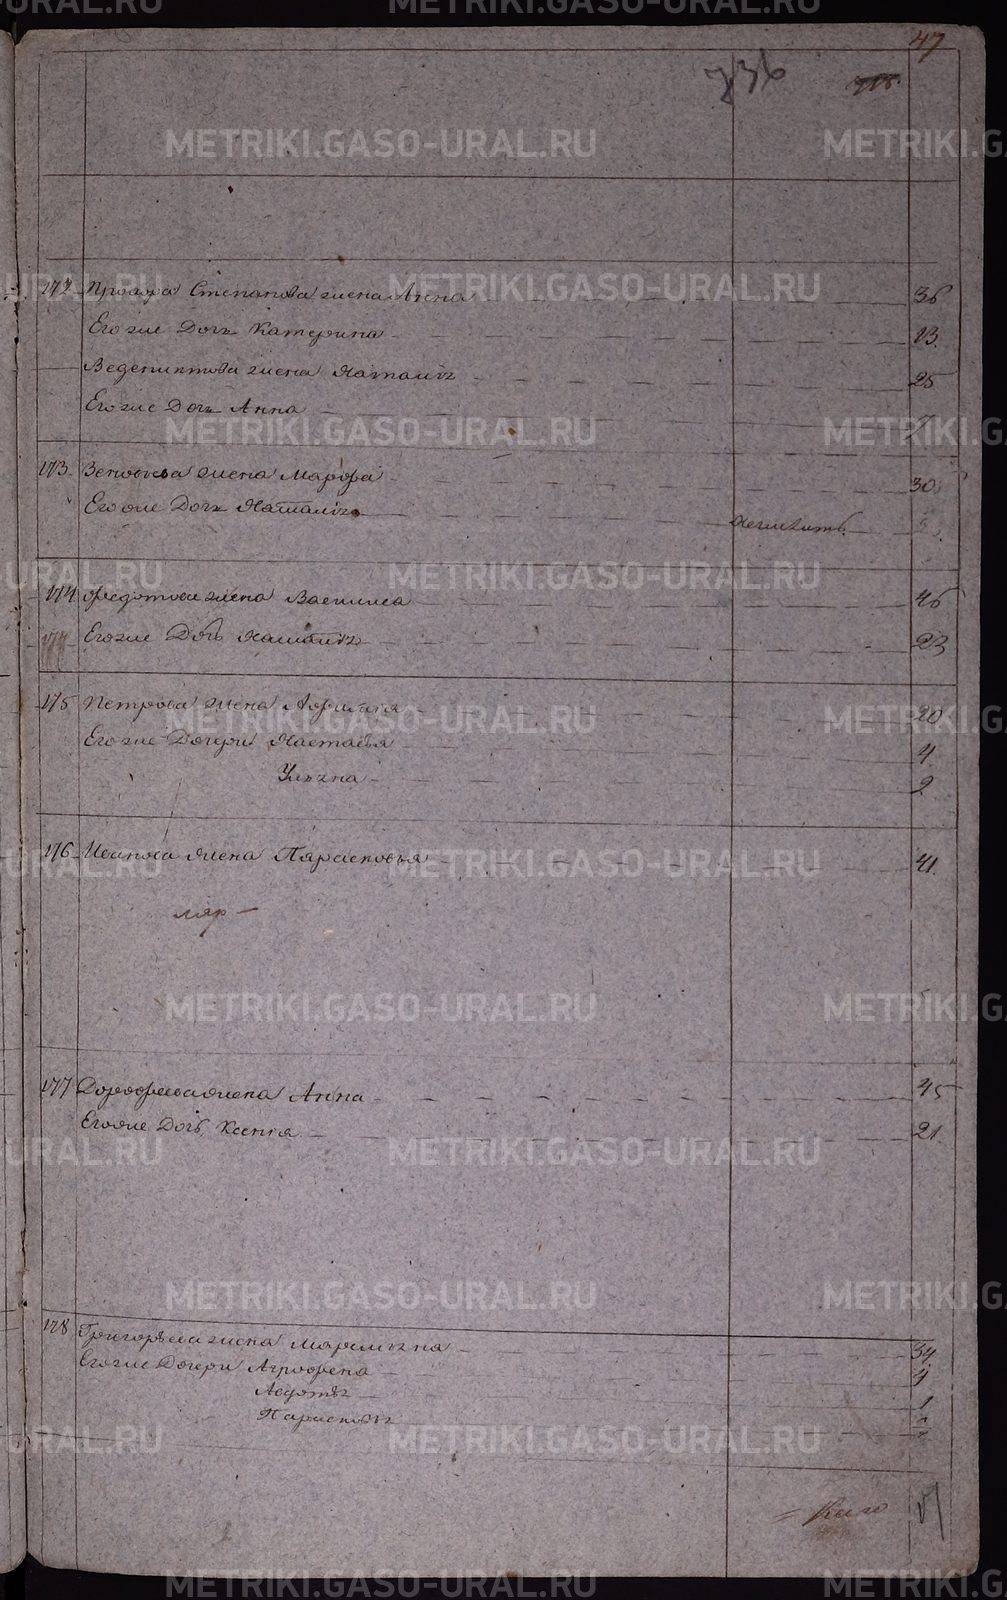 47
736
172 Прохора Степанова жена Анна 36
Его же Дочь Катерина 13
Веденихтова жена Наталья 25
Его же Дочь Анна
173 жена Марфа 30
Его же Дочь Наталья
174 Федотова жена Василиса 46
Его же Дочь Наталья 23
175 Петрова жена 20
Его же Дочери Настасья 4
Ульяна 2
176 Иванова жена Парасковья 41
177 Дорофеева жена Анна 45
Его же Дочь Ксенья 21
178 Григорьева жена Маремьяна 34
Его же Дочери Агрофена 4
Авдотья 1
Парасковья
METRIKI.GASO-URAL.RU